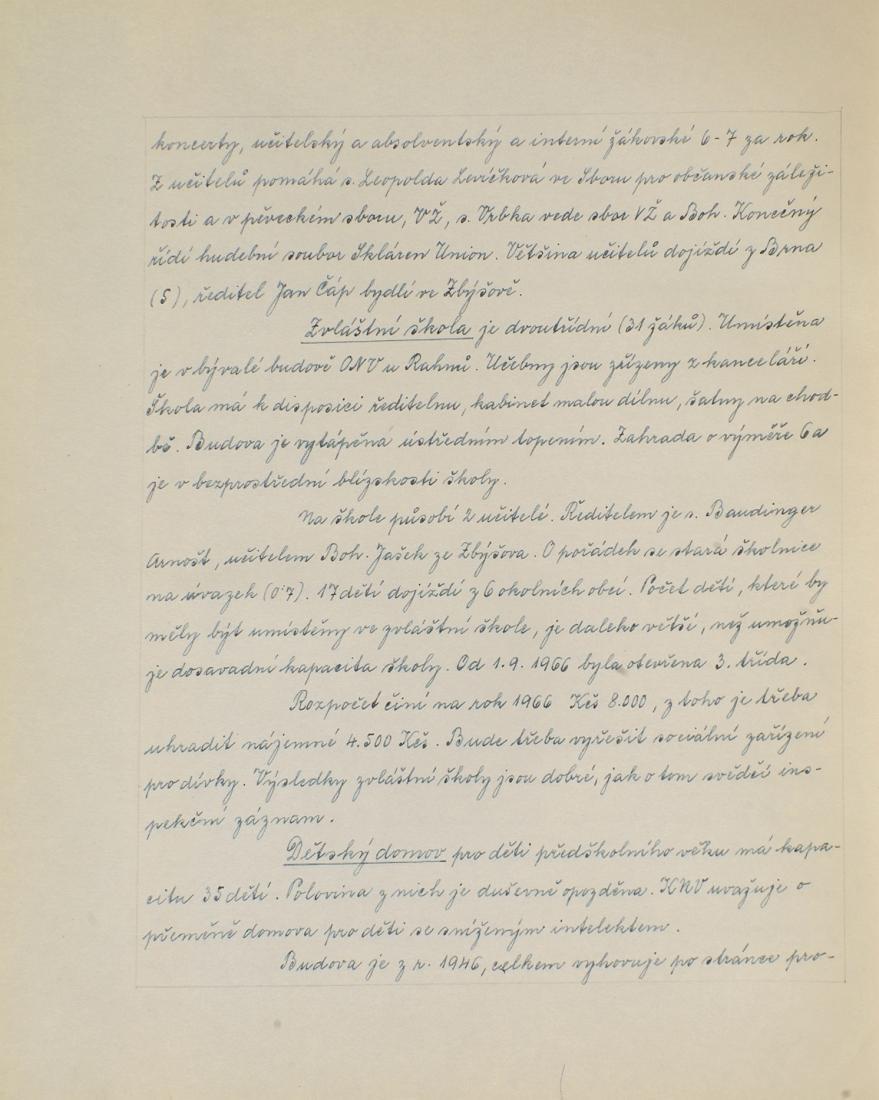 koncerty, učitelský a absolventský a interní žákovské 6-7 za rok.
Z učitelů pomáhá s. Leopolda Levíčková ve Sboru pro občanské záleži-
tosti a v pěveckém sboru, VŽ, s. Vrbka vede sbor VŽ a Boh. Konečný
řídí hudební soubor Skláren Union. Většina učitelů dojíždí z Brna
(5), ředitel Jan Čáp bydlí ve Zbýšově.
Zvláštní škola je dvoutřídní (31 žáků). Umístěna
je v bývalé budově ONV u Rahmů. Učebny jsou zřízeny z kanceláří.
Škola má k disposici ředitelnu, kabinet malou dílnu, šatny na chod-
bě. Budova je vytápěna ústředním topením. Zahrada o výměře 6a
je v bezprostřední blízskosti školy.
Na škole působí 2 učitelé. Ředitelem je s. Baudinger
Arnošt, učitelem Boh. Jašek ze Zbýšova. O pořádek se stará školnice
na úvazek (0˙7). 17 dětí dojíždí z 6 okolních obcí. Počet dětí, které by
měly být umístěny ve zvláštní škole, je daleko větší, než umožňu-
je dosavadní kapacita školy. Od 1.9. 1966 byla otevřena 3. třída.
Rozpočet činí na rok 1966 Kčs 8.000, z toho je třeba
uhradit nájemné 4.500 Kčs. Bude třeba vyřešit sociální zařízení
pro dívky. Výsledky zvláštní školy jsou dobré, jak o tom svědčí ins-
pekční záznam.
Dětský domov pro děti předškolního věku má kapa-
citu 35 dětí. Polovina z nich je duševně opozděna. KNV uvažuje o
přeměně domova pro děti se sníženým intelektem.
Budova je z r. 1946, celkem vyhovuje po stránce pro-